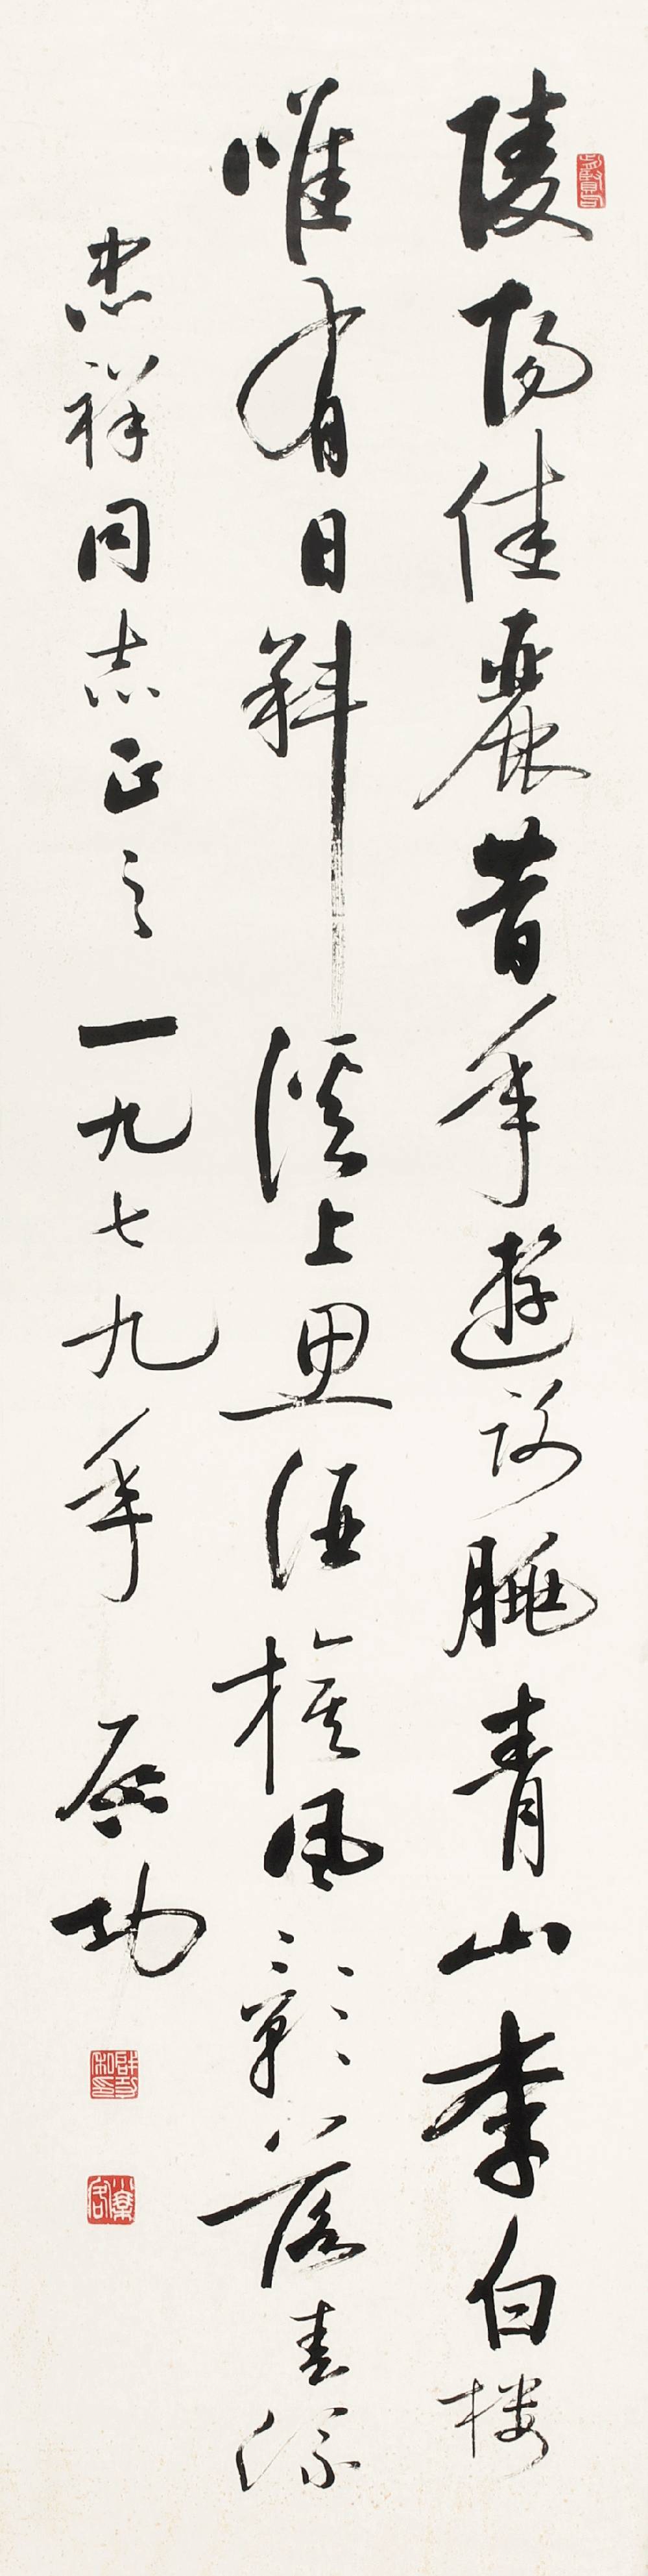 陵陽佳麗昔年遊謝朓青山李白樓
唯有日斜溪上思酒旗風影落春流
忠祥同志正之一九七九年 启功